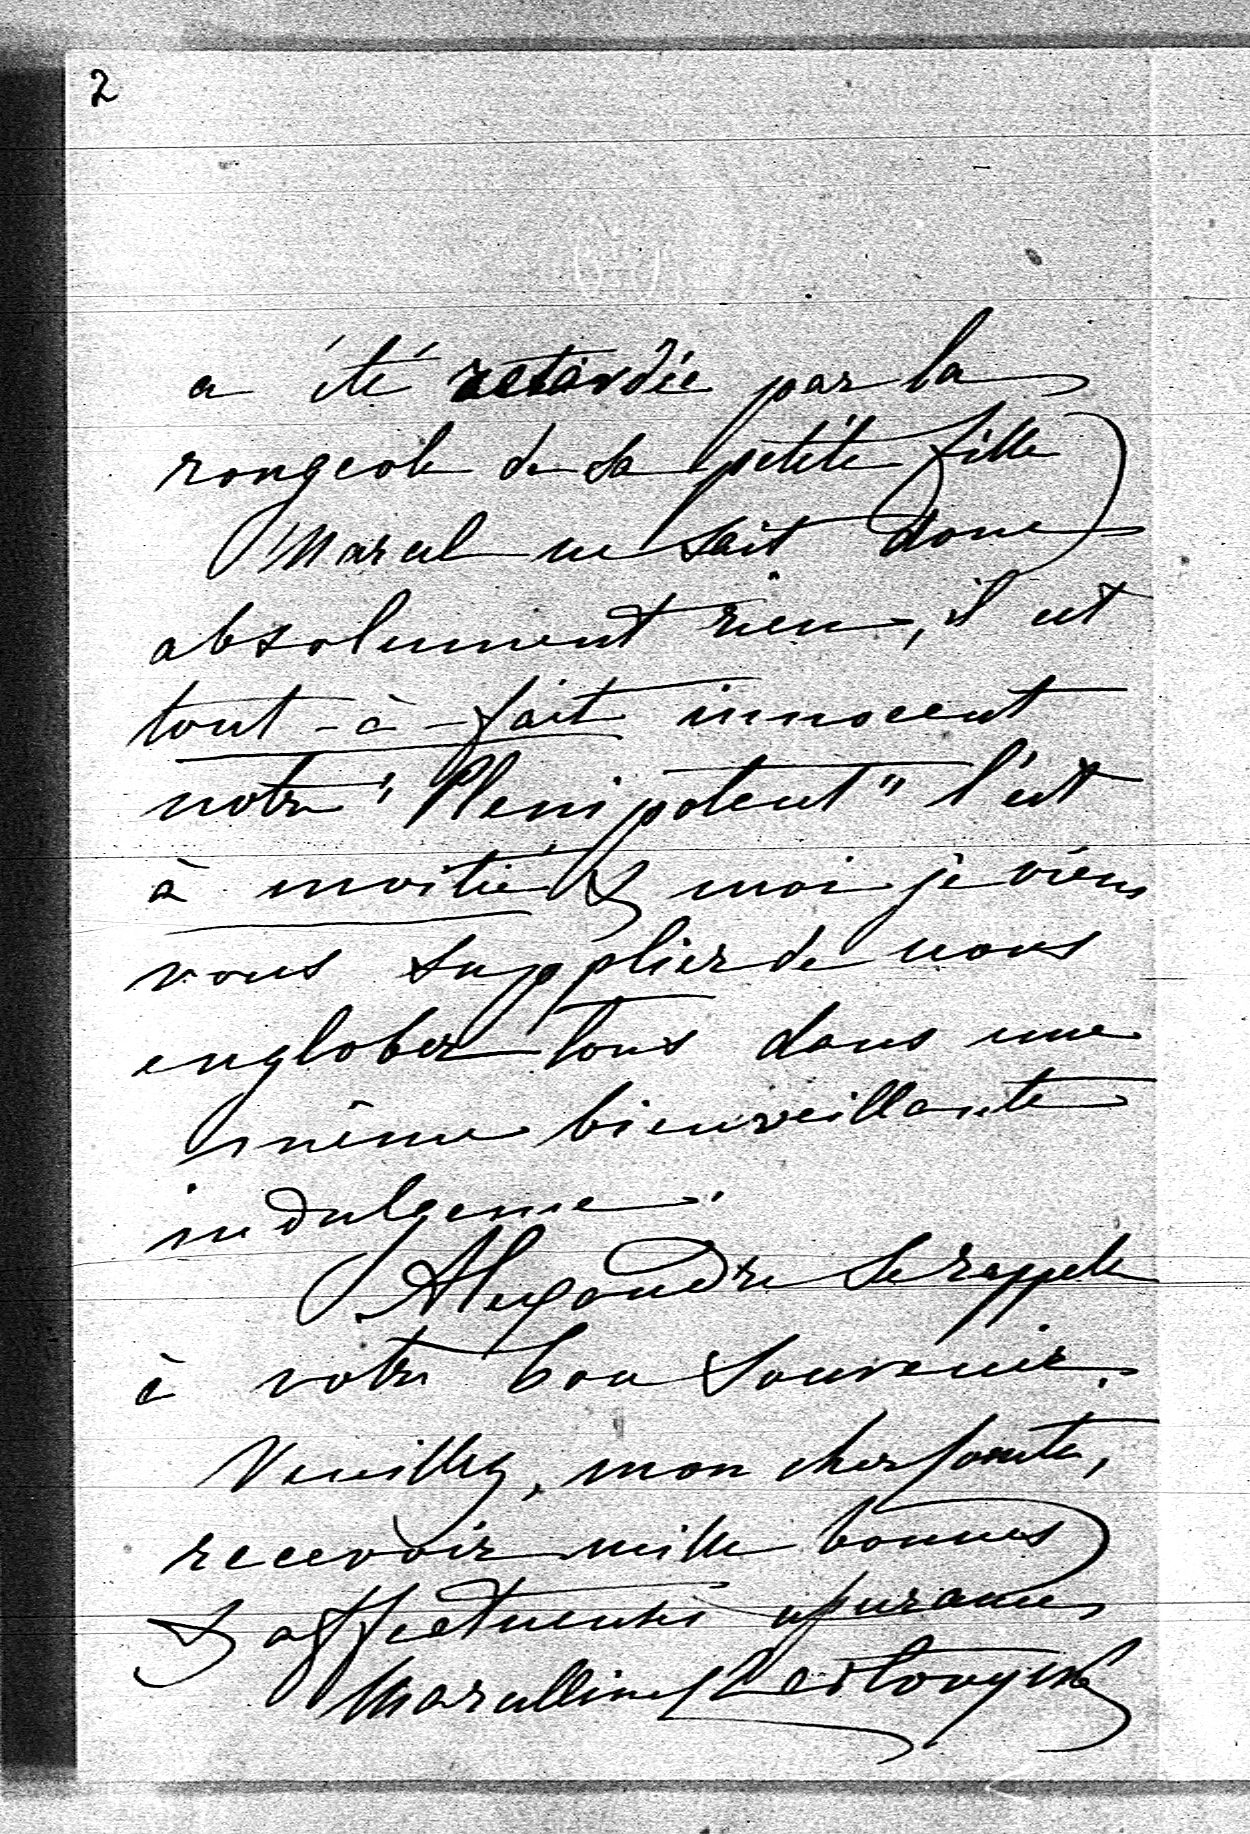 2
a été retardée par la
rougeole de sa petite fille
Marcel ne sait donc
absolument rien, il est
tout-à-fait innocent
notre "Plenipotent" l'est
à moitié & moi je viens
vous supplier de nous
englober tous dans une
même bienveillante
indulgence.
Alexandre se rappele
à votre bon souvenir.
Veuillez, mon cher Comte,
recevoir mille bonnes
& affectueuses assurances
Marcelline